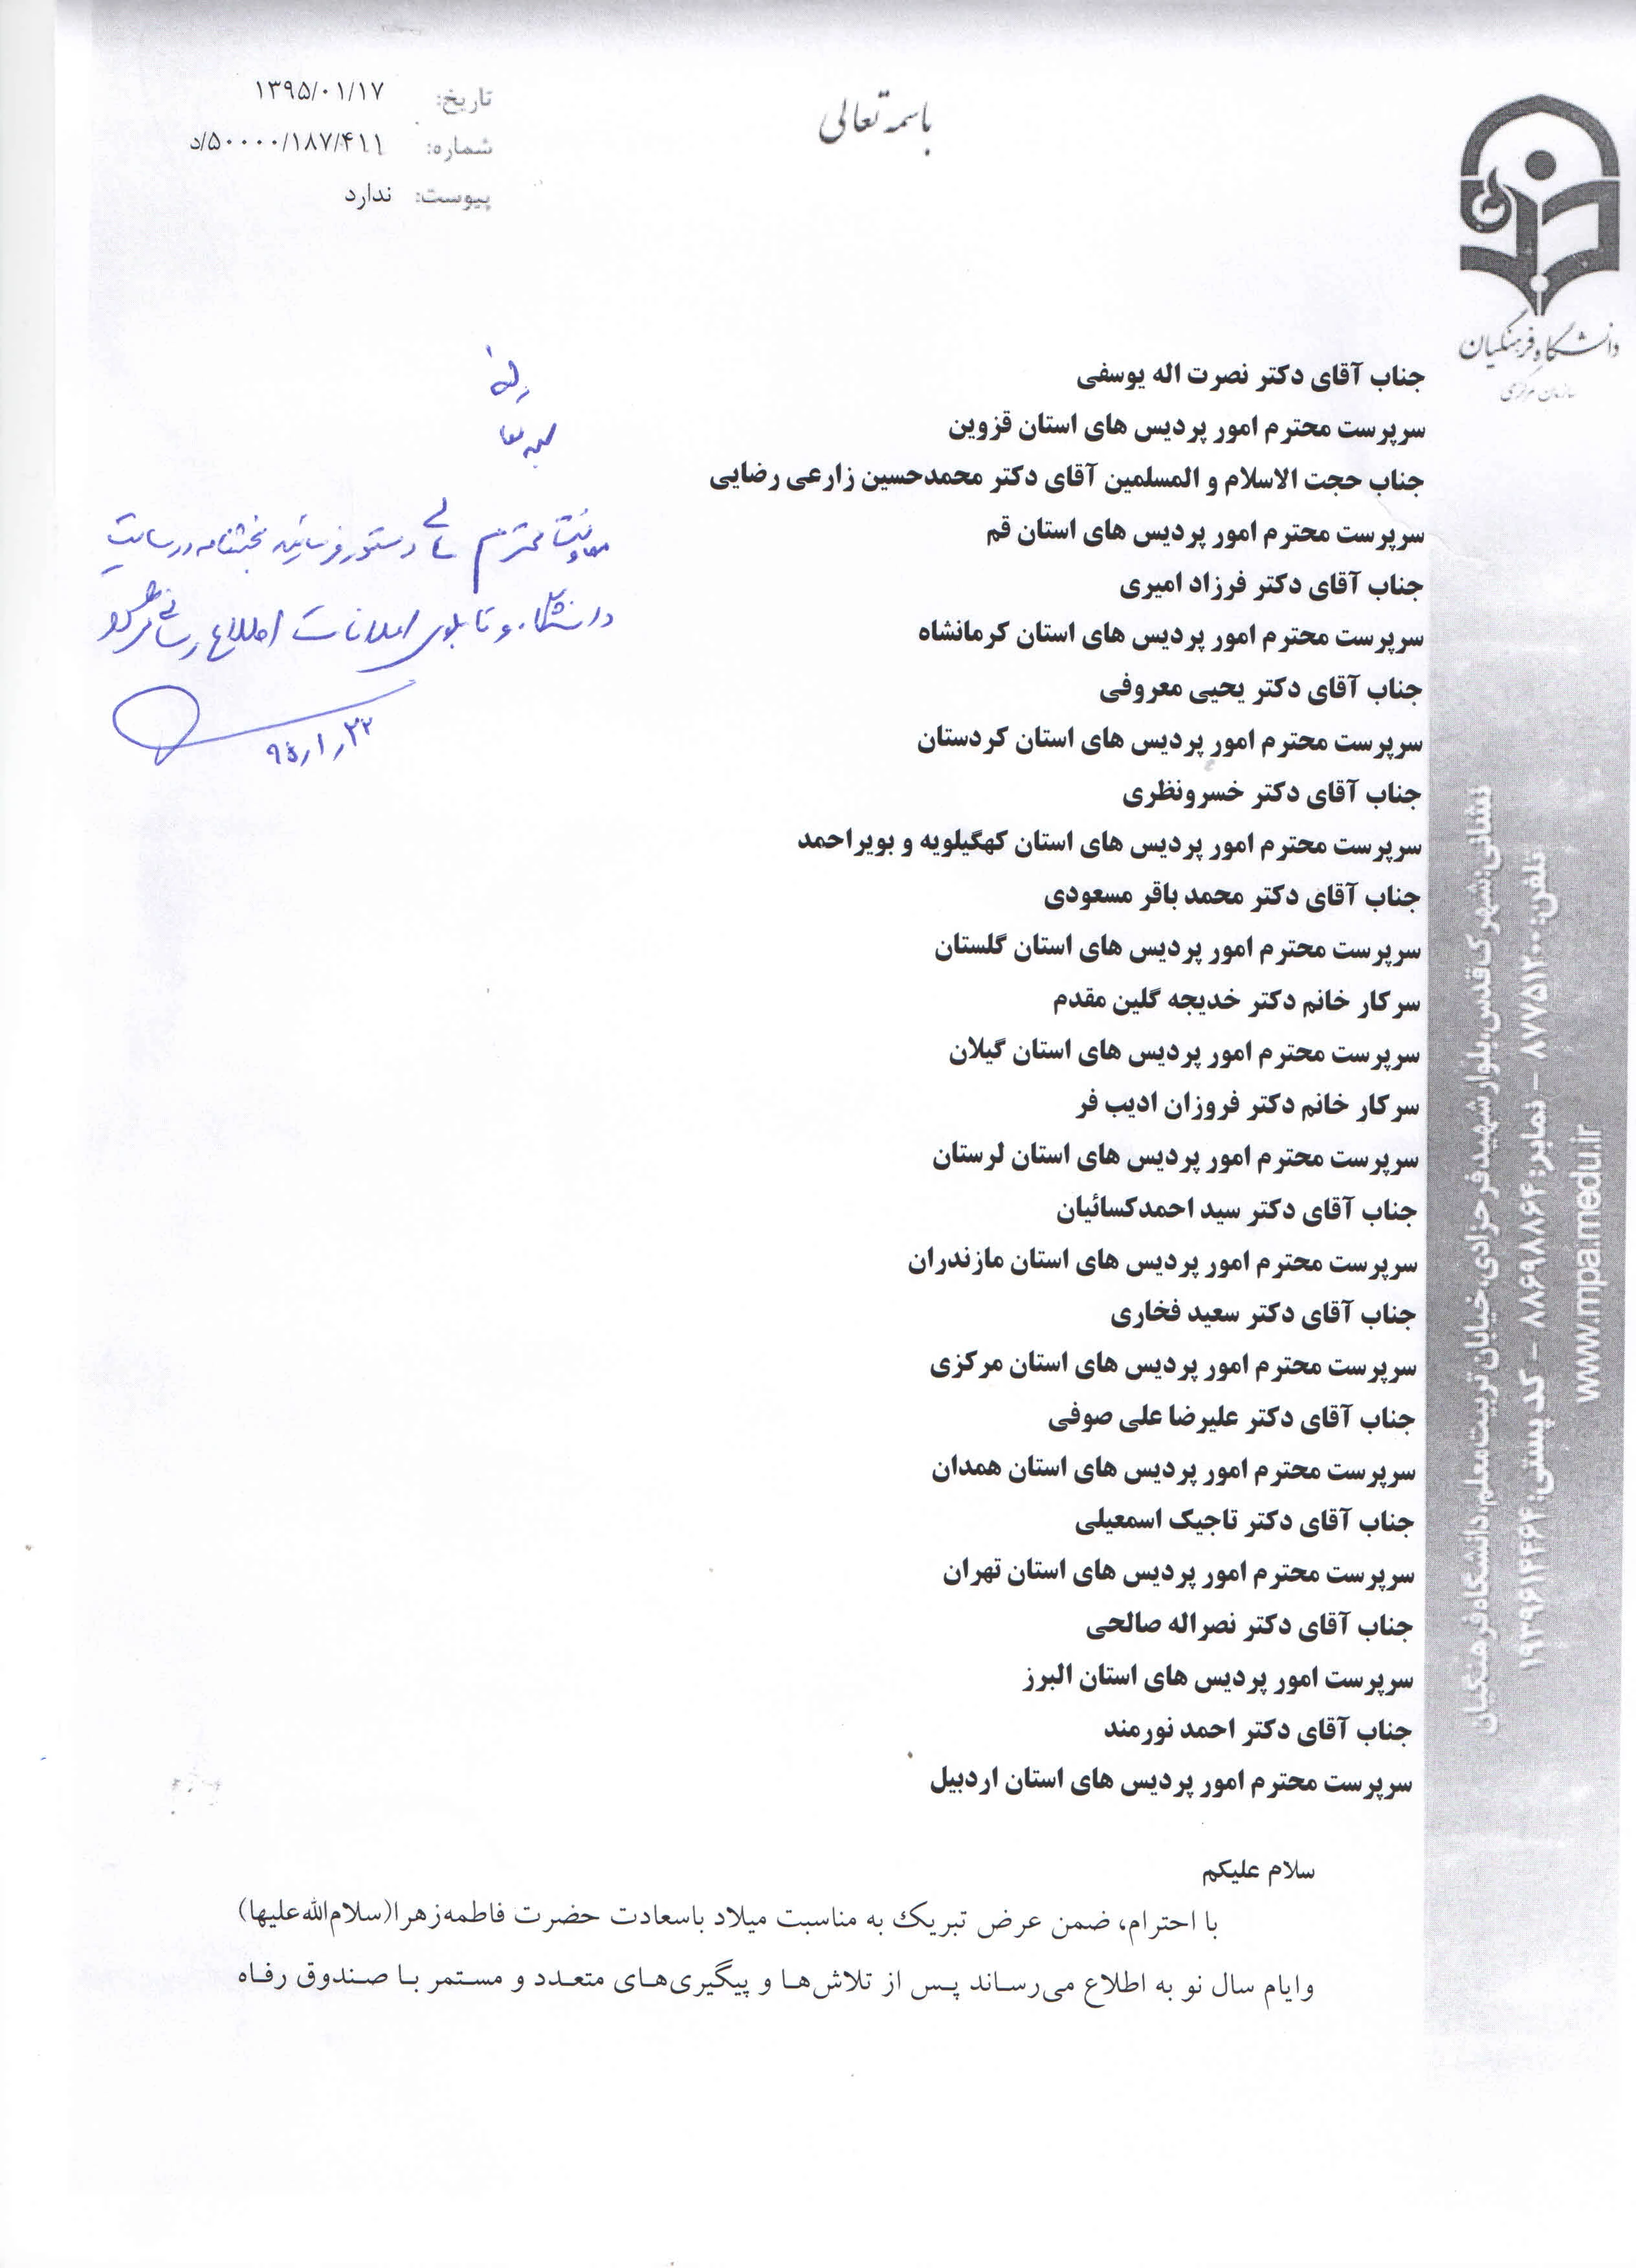 باسمه تعالی
تاریخ: ۱۳۹۵/۰۱/۱۷
شماره: ۵۰۰۰۰/۱۸۷/۴۱۱/د
پیوست: ندارد
دانشگاه فرهنگیان
سازمان مرکزی
جناب آقای دکتر نصرت اله یوسفی
سرپرست محترم امور پردیس های استان قزوین
جناب حجت الاسلام و المسلمین آقای دکتر محمدحسین زارعی رضایی
سرپرست محترم امور پردیس های استان قم
جناب آقای دکتر فرزاد امیری
سرپرست محترم امور پردیس های استان کرمانشاه
جناب آقای دکتر یحیی معروفی
سرپرست محترم امور پردیس های استان کردستان
جناب آقای دکتر خسرونظری
سرپرست محترم امور پردیس های استان کهگیلویه و بویراحمد
جناب آقای دکتر محمد باقر مسعودی
سرپرست محترم امور پردیس های استان گلستان
سرکار خانم دکتر خدیجه گلین مقدم
سرپرست محترم امور پردیس های استان گیلان
سرکار خانم دکتر فروزان ادیب فر
سرپرست محترم امور پردیس های استان لرستان
جناب آقای دکتر سید احمدکسائیان
سرپرست محترم امور پردیس های استان مازندران
جناب آقای دکتر سعید فخاری
سرپرست محترم امور پردیس های استان مرکزی
جناب آقای دکتر علیرضا علی صوفی
سرپرست محترم امور پردیس های استان همدان
جناب آقای دکتر تاجیک اسمعیلی
سرپرست محترم امور پردیس های استان تهران
جناب آقای دکتر نصراله صالحی
سرپرست امور پردیس های استان البرز
جناب آقای دکتر احمد نورمند
سرپرست محترم امور پردیس های استان اردبیل
معاونت محترم دستور فرمایید بخشنامه در سایت
دانشگاه و تابلوی اعلانات اطلاع رسانی
۹۵/۱/۲۲
سلام علیکم
با احترام، ضمن عرض تبریک به مناسبت میلاد باسعادت حضرت فاطمه‌زهرا(سلام‌الله‌علیها)
وایام سال نو به اطلاع می‌رساند پس از تلاش‌ها و پیگیری‌های متعدد و مستمر با صندوق رفاه
نشانی: شهرک قدس، بلوار شهید فرحزادی، خیابان تربیت معلم، دانشگاه فرهنگیان
تلفن: ۸۷۷۵۱۲۰۰ – نمابر: ۸۸۶۹۸۸۶۴ – کد پستی: ۱۹۳۹۶۱۴۴۶۴
www.mpa.medu.ir